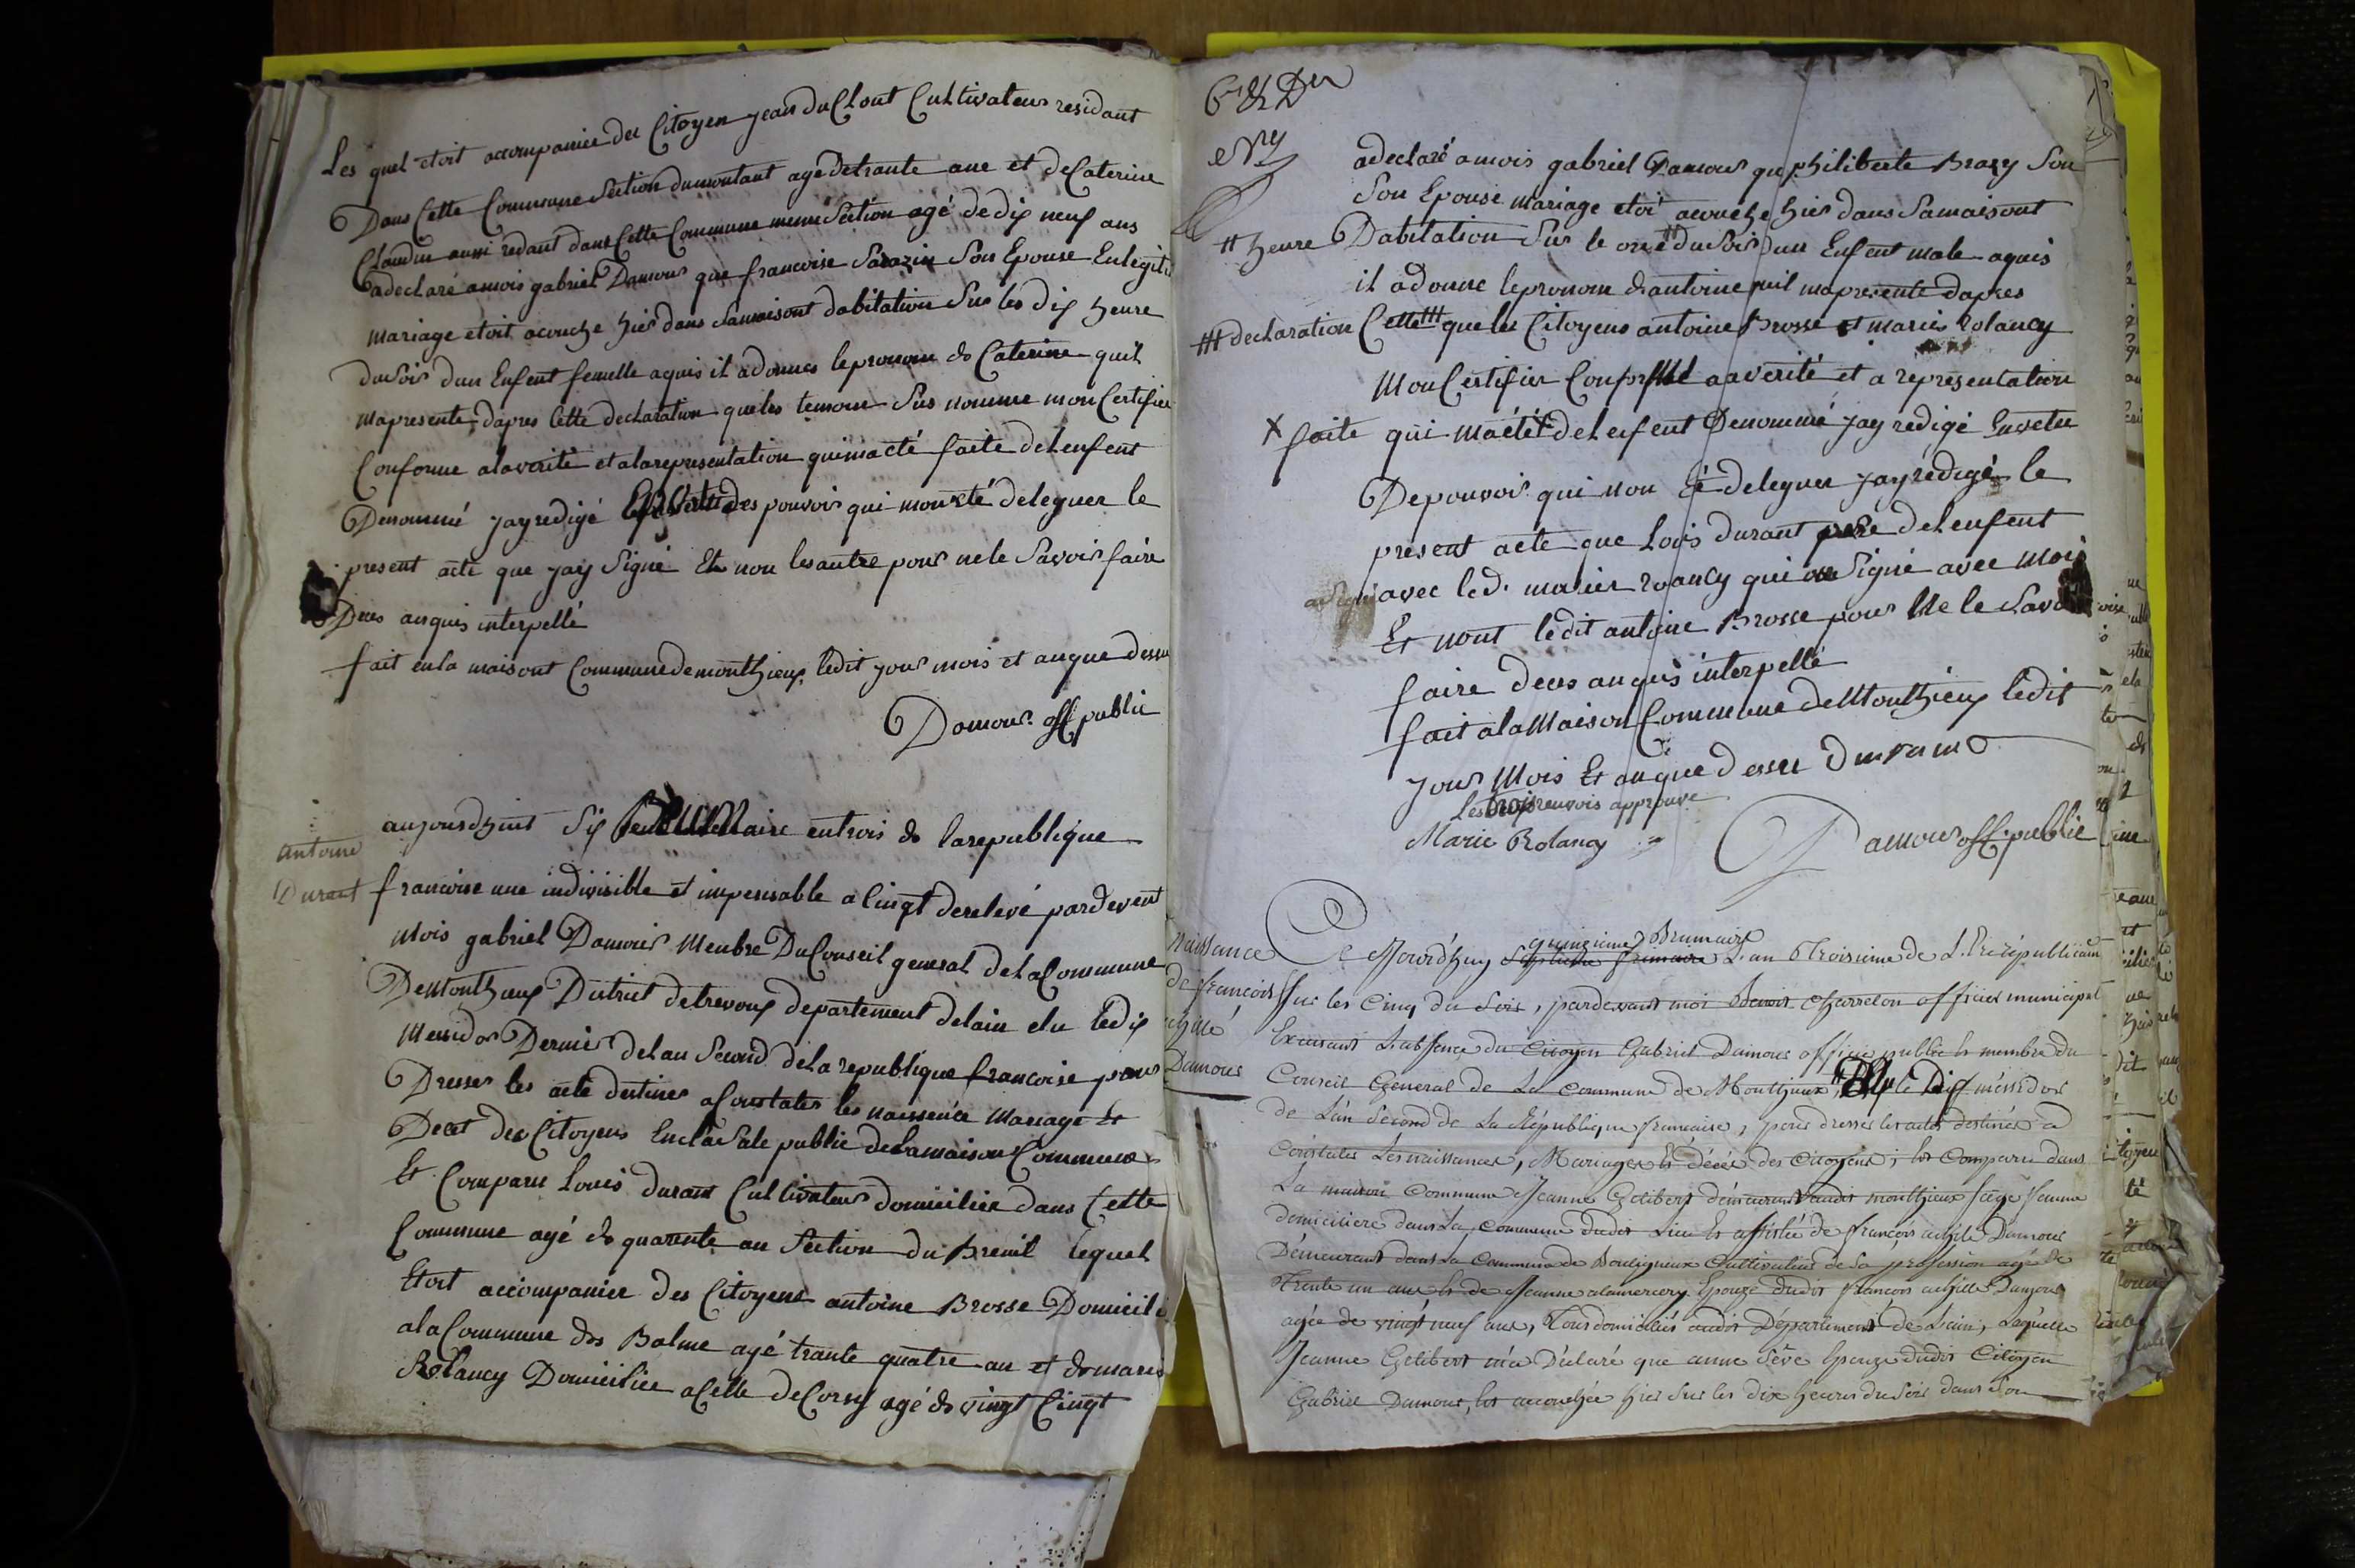 Les quel etoit accompanier del Citoyen jean du Clout Cultivateur residant
Dans Cette Commune Section dumontant agé de trante ane et de Caterine
Claudin aussi redant dans Cette Commune meme Section agé de dix neuf ans
adeclaré amois gabriel Damour que francoise Sarazin Son Epouse Enlegiti
mariage etoit acouche hier dans Samaisont dabitation Sur les dix heure
du Soir dun Enfent femelle aquis il adonnes lepronom de Caterine quil
mapresente dapres Cette declaration queles temoin Sus nomme mon Certifier
Conforme alaverité et alarepresentation quimaeté faite delenfent
Denommé jay redigé des pouvoir qui mon eté deleguer le
present acte que jay Signé Et non les autre pour nele Savoir faire
Dece anquis interpellé
fait enla maisont Commune demonthieux ledit jour mois et anque dessu
Damour off public
antoine
Durant
aujourdhuit Six Brumaire entrois de larepublique
francoise une indivisible et imperisable a Cinqt derelevé pardevent
Mois gabriel Damour Menbre Du Conseil general dela Commune
De Monthieux District detrevoux departement delain elu ledix
Messidor Dernier delan Second dela republique francoise pour
Dresser les acte destiner a Constater les naissence Mariage Et
Decet des Citoyens Enla Sale public delamaison Commune
Et Comparu Louis durant Cultivateur domicilier dans Cette
Commune agé de quarente an Section du Breuil lequel
Etoit accompanier des Citoyens antoine Brosse Domicilié
ala Commune des Balme agé trante quatre an et de marie
Rolancy Domiciliee a Celle de Corsy agé de vingt Cingt
adeclaré amois gabriel Damour que philiberte Brazy Son
Son Epouse mariage etoi acouche hier dans Samaisont
# heure Dabitation Sur le onze # du Soir dun Enfent male aquis
il adonne lepronom dantoine quil mapresente dapres
### declaration Cette ### queles Citoyens antoine Brosse et marier Rolancy
Mon Certifier Conforme aaverité et a representation
X faite qui maété X delenfent Denommé jay redigé Envetu
De pouvoir qui non é deleguer jay redigé le
present acte que Louis durant pere delenfent
a Signé avec led. marier roancy qui on Signé avec Mois
Et nont ledit antoine Brosse pour Ne le Savoir
faire deces anquis interpellé
fait ala Maison Commune de Monthieux ledit
jour Mois Et anque dessu Durant
Les trois renvois approuve
Marie Rolancy
Damour off. public
Naissance
de francois
achille
Damour
quinzieme Brumaire
Ce Jourd'huy Septieme frimaire L'an Troisieme de L'Ere républicaine
Sur les Cinq du Soir, pardevant moi Benoit Charreton officier municipal
Excusant L'absence du Citoyen Gabriel Damour officier public Et membre du
Conseil General de La Commune de Monthieux, Elu le Dix méssidor
de L'an Second de La République francaise, pour dresser les actes destinés a
Constater Les naissances, Mariages Et décès des Citoyens; Est Comparu dans
La maison Commune Jeanne Gelibert démeurant audit monthieux sage femme
domiciliere dans La Commune dudit Lieu Et assistée de françois achile Damour
Démeurant dans La Commune de Bouligneux Cultivateur de Sa profession agé de
Trente un ans Et de Jeanne alamercery Epouze dudit francois achille Damour
agée de vingt neuf ans, Tous domiciliés audit Département de L'ain, Laquelle
Jeanne Gelibert m'a Déclaré que anne Sêve Epouze dudit Citoyen
Gabriel Damour, Est accouchée hier Sur les dix heures du Soir dans Son